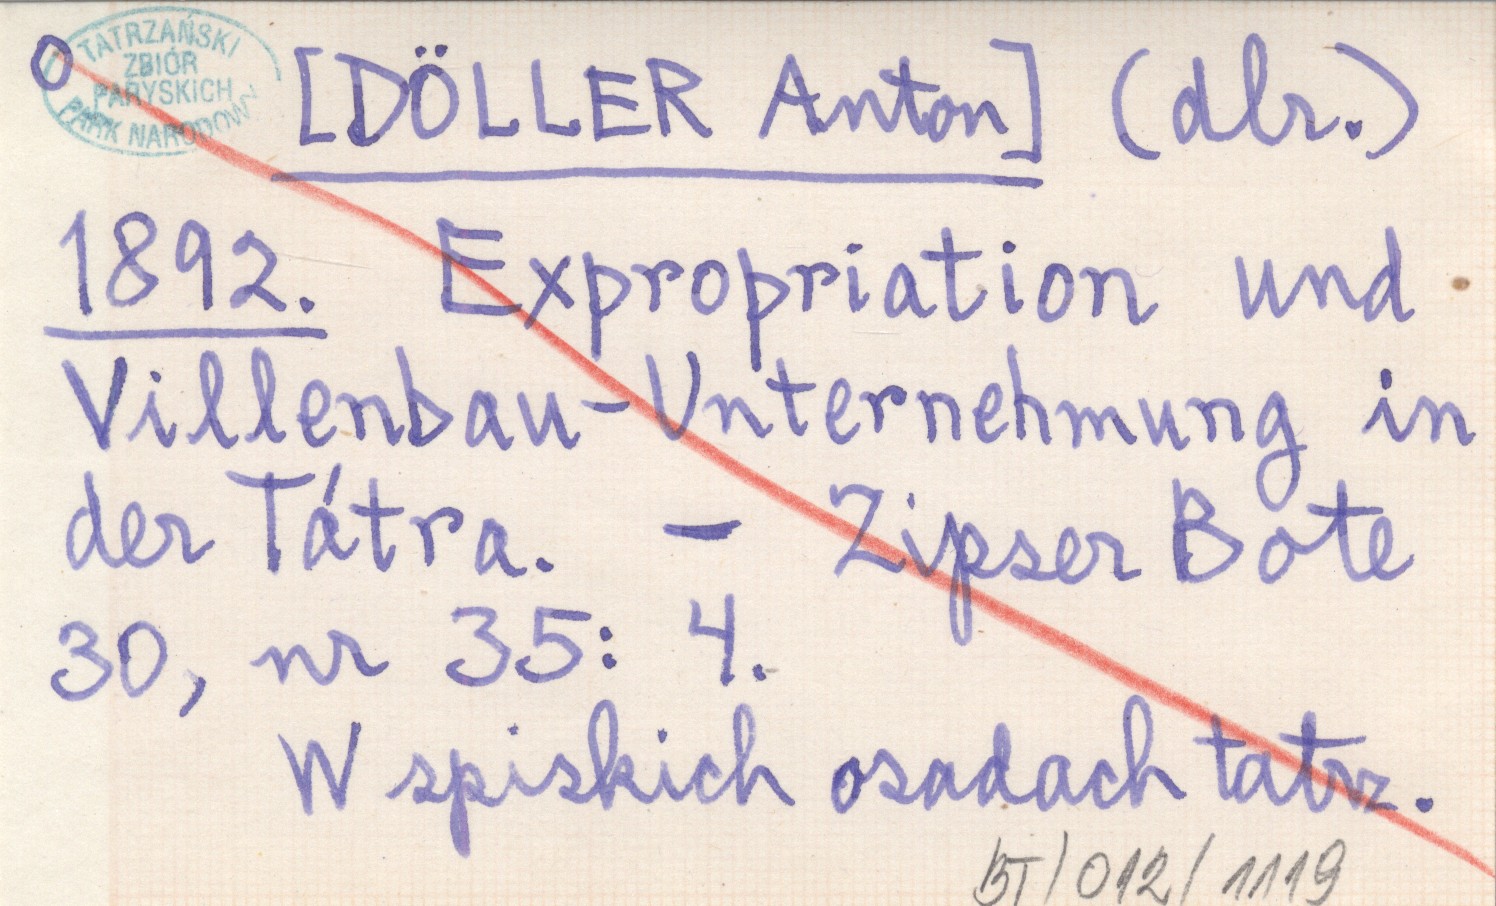 TATRZAŃSKI
ZBIÓR
PARYSKICH
PARK NARODOWY
[DÖLLER Anton] (dlr.)
1892. Expropriation und
Villenbau-Unternehmung in
der Tátra. - Zipser Bote
30, nr 35: 4.
W spiskich osadach tatrz.
BT/012/1119